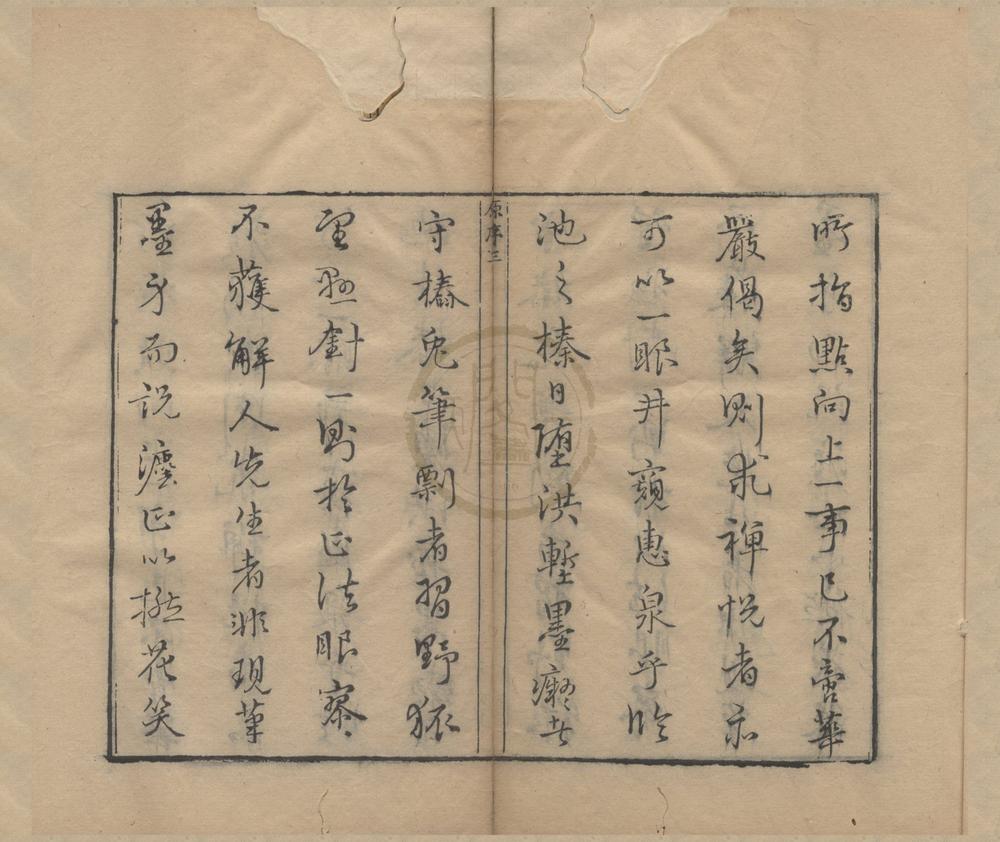 所指點向上一事已不啻華
嚴偈矣則求禪悅者亦
可以一眼井窺惠泉乎臨
池之榛日墮洪塹墨癡者
原序三
守樁兔筆剽者習野狐
單懸針一對於正法眼寥寥
不獲解人先生者非現筆
墨身而說瀍正以拈花笑